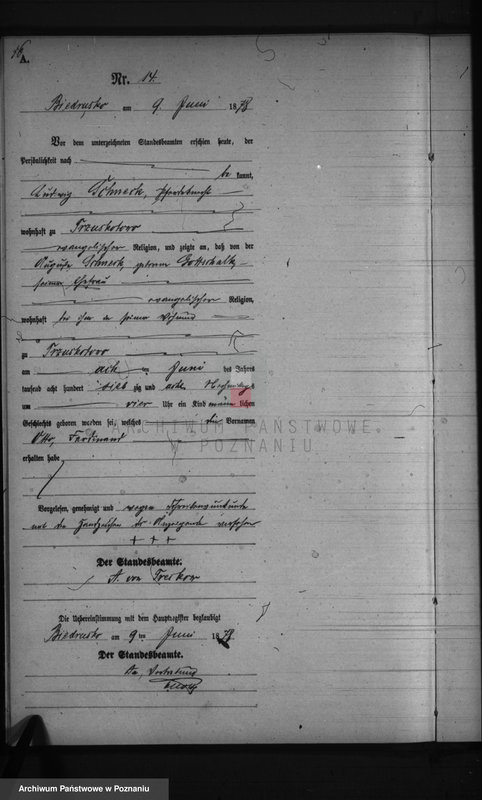 A.
Nr. 14.
Biedrusko am 9. Juni 1878
Vor dem unterzeichneten Standesbeamten erschien heute, der
Persönlichkeit nach
be kannt,
Ludwig Schmerk, Pferdeknecht
wohnhaft zu
evangelischer Religion, und zeigte an, daß von der
Auguste Schmerk, geborene Gottschalk,
seiner Ehefrau
evangelischer Religion,
wohnhaft bei ihm in seiner
zu
am acht ten Juni des Jahres
tausend acht hundert sieb zig und acht Nachmittags
um vier Uhr ein Kind männ lichen
Geschlechts geboren worden sei, welches die Vornamen
Otto, Ferdinand
erhalten habe
Vorgelesen, genehmigt und wegen Schreibensunkunde
mit dem Handzeichen des versehen
+ + +
Der Standesbeamte.
A. von Treskow
Die Uebereinstimmung mit dem Hauptregister beglaubigt
Biedrusko am 9 ten Juni 1878
Der Standesbeamte.
In Vertretung
ARCHIWUM PAŃSTWOWE
W POZNANIU
Archiwum Państwowe w Poznaniu